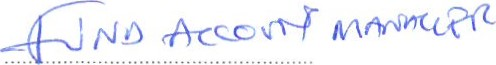 FUND ACCOUNT MANAGER